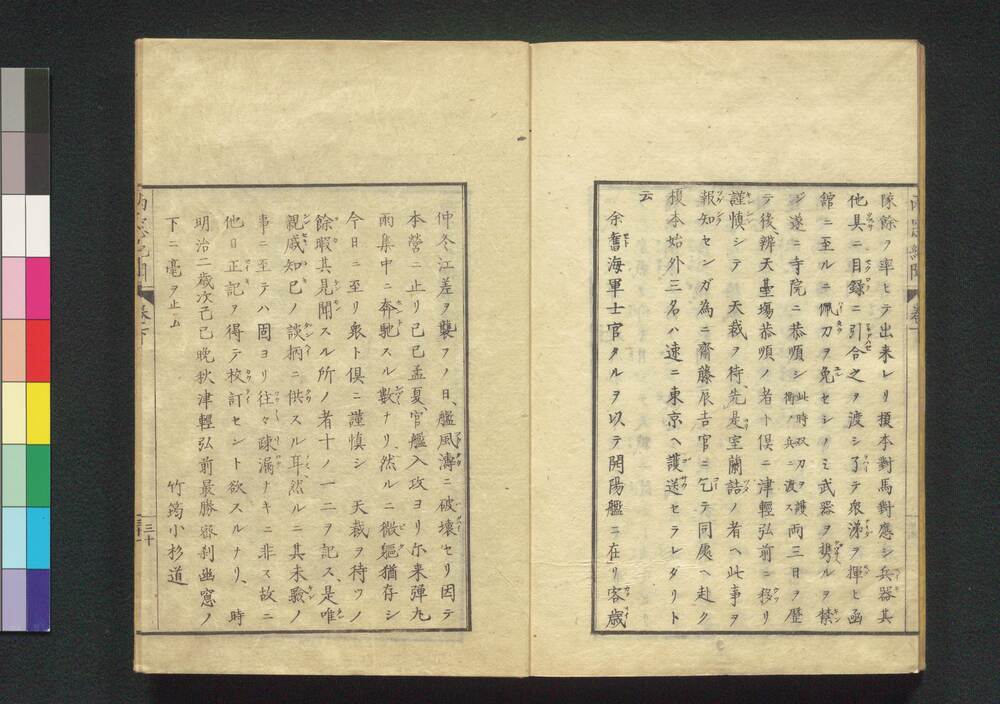 陳餘ヲ率ヒテ出来レリ榎本對馬對應シ兵器其
他具ニ目録ニ引合之ヲ渡シ了テ衆涕ヲ揮ヒ函
舘ニ至ルニ佩刀ヲ免セシノミ武器ヲ携ルヲ禁
ジ遂ニ寺院ニ恭順シ此時双刀ヲ護衛ノ兵ニ渡ス両三日ヲ歴
テ後辨天臺場恭順ノ者ト倶ニ津輕弘前ニ移リ
謹慎シテ 天裁ヲ待、先是室蘭詰ノ者ヘ此事ヲ
報知センガ為ニ齋藤辰吉官ニ乞テ同處ヘ赴ク
榎本始外三名ハ速ニ東京ヘ護送セラレタリト
云
余舊海軍士官タルヲ以テ開陽艦ニ在リ客歳
仲冬江差ヲ襲フノ日、艦風濤ニ破壊セリ因テ
本營ニ止リ己巳孟夏、官艦入攻ヨリ尓来弾丸
雨集中ニ奔馳スル數ナリ、然ルニ微軀猶存シ
今日ニ至リ衆ト倶ニ謹慎シ 天裁ヲ待ツノ
餘暇其見聞スル所ノ者十ノ一二ヲ記ス、是唯
親戚知己ノ談柄ニ供スル耳然ルニ其未歇ノ
事ニ至テハ固ヨリ往々疎漏ナキニ非ス故ニ
他日正記ヲ得テ校訂セント欲スルナリ、 時
明治二歳次己巳晩秋津輕弘前最勝密刹幽窓ノ
下ニ毫ヲ止ム 竹筠小杉道
巻下
三十